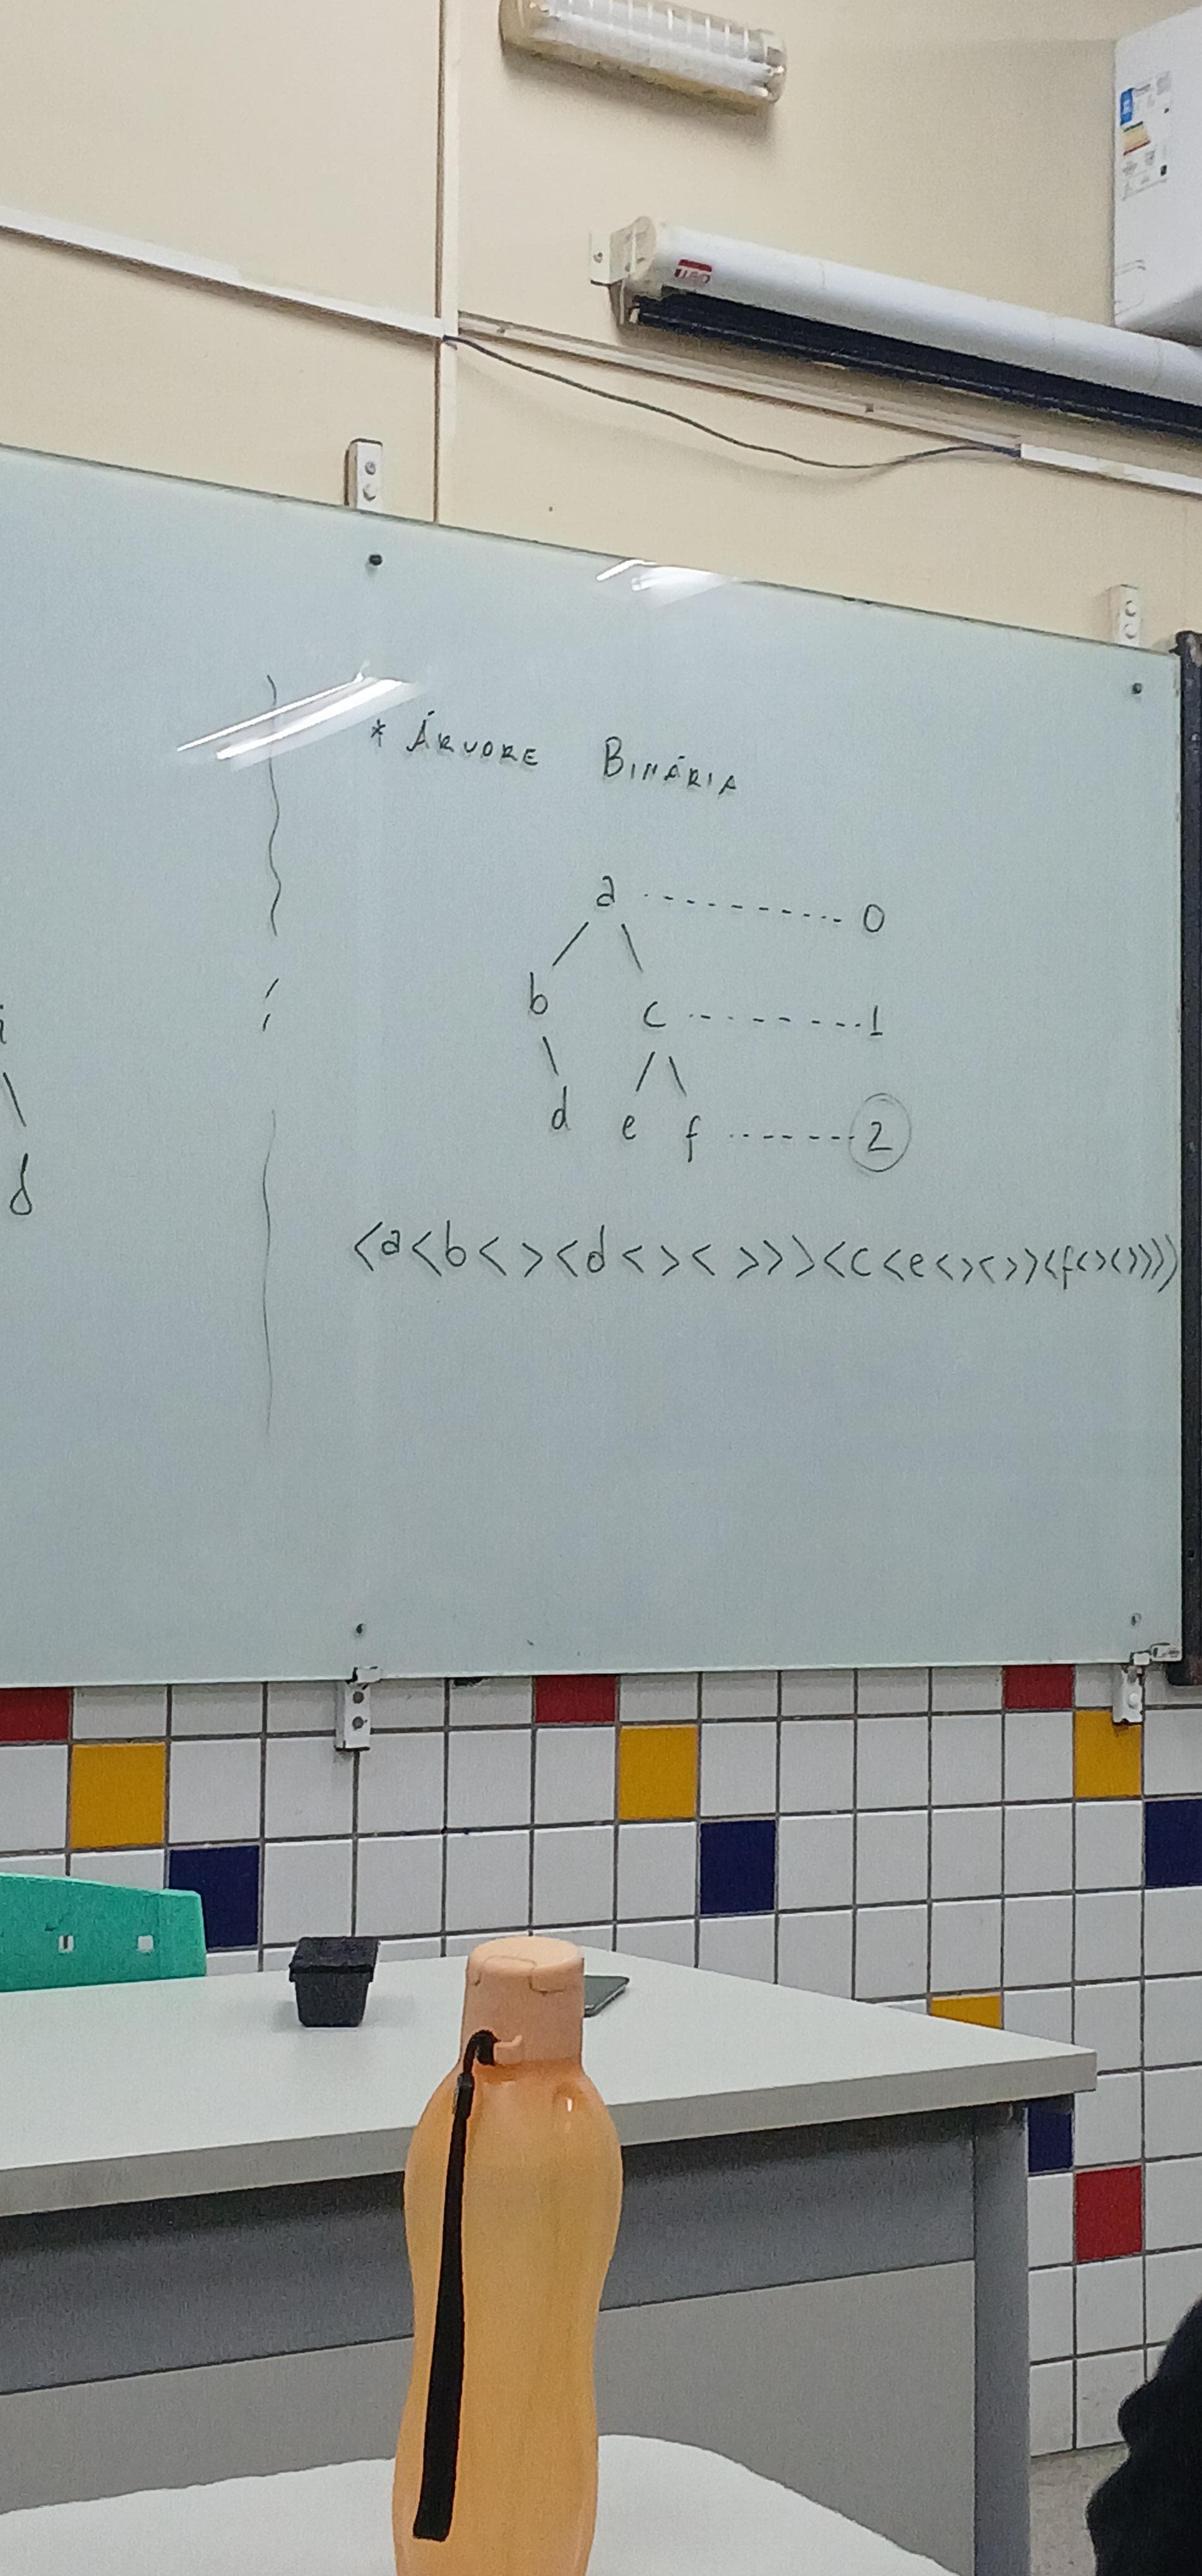 * ÁRVORE BINÁRIA
a ---------- 0
b c -------- 1
d e f ------- 2
d
<a<b< ><d< >< >>><c<e<><>><f<><>>>>